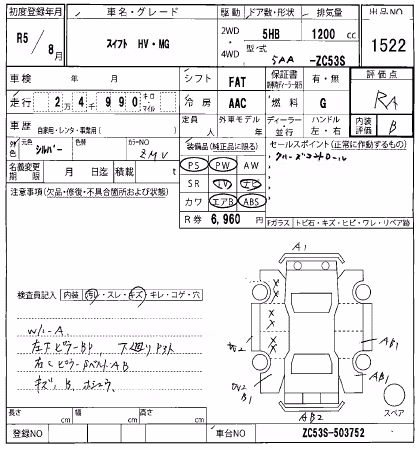 初度登録年月 車名・グレード 駆動 ドア数・形状 排気量 出品NO
R5 / 8月 スイフト HV・MG 2WD 4WD 5HB 1200 cc 1522
型・式 5AA -ZC53S
車検 年 月 シフト FAT 保証書 有・無 評価点
走行 2万4千990キロ・マイル 冷房 AAC 燃料 G RA
車歴 自家用・レンタ・事業用( ) 定員 人 外車モデル 年 ディーラー・並行 ハンドル 左・右 内装評価 B
外色 シルバー 色替 カラーNO ZMV
装備品(純正品に限る) セールスポイント(正常に作動するもの)
名義変更期限 月 日迄 積載 t PS PW AW クルーズコントロール
注意事項(欠品・修復・不具合箇所および状態) SR TV ナビ
カワ エアB ABS
R券 6,960 円 Fガラス トビ石・キズ・ヒビ・ワレ・リペア跡
検査員記入 内装 汚・スレ・キズ・キレ・コゲ・穴
W/L-A
左下ピラーBP
右Cピラー AB
キズ、B、
A1
AB1
AB1
B1
AB2
スペア
長さ cm 幅 cm 高さ cm
登録NO 車台NO ZC53S-503752